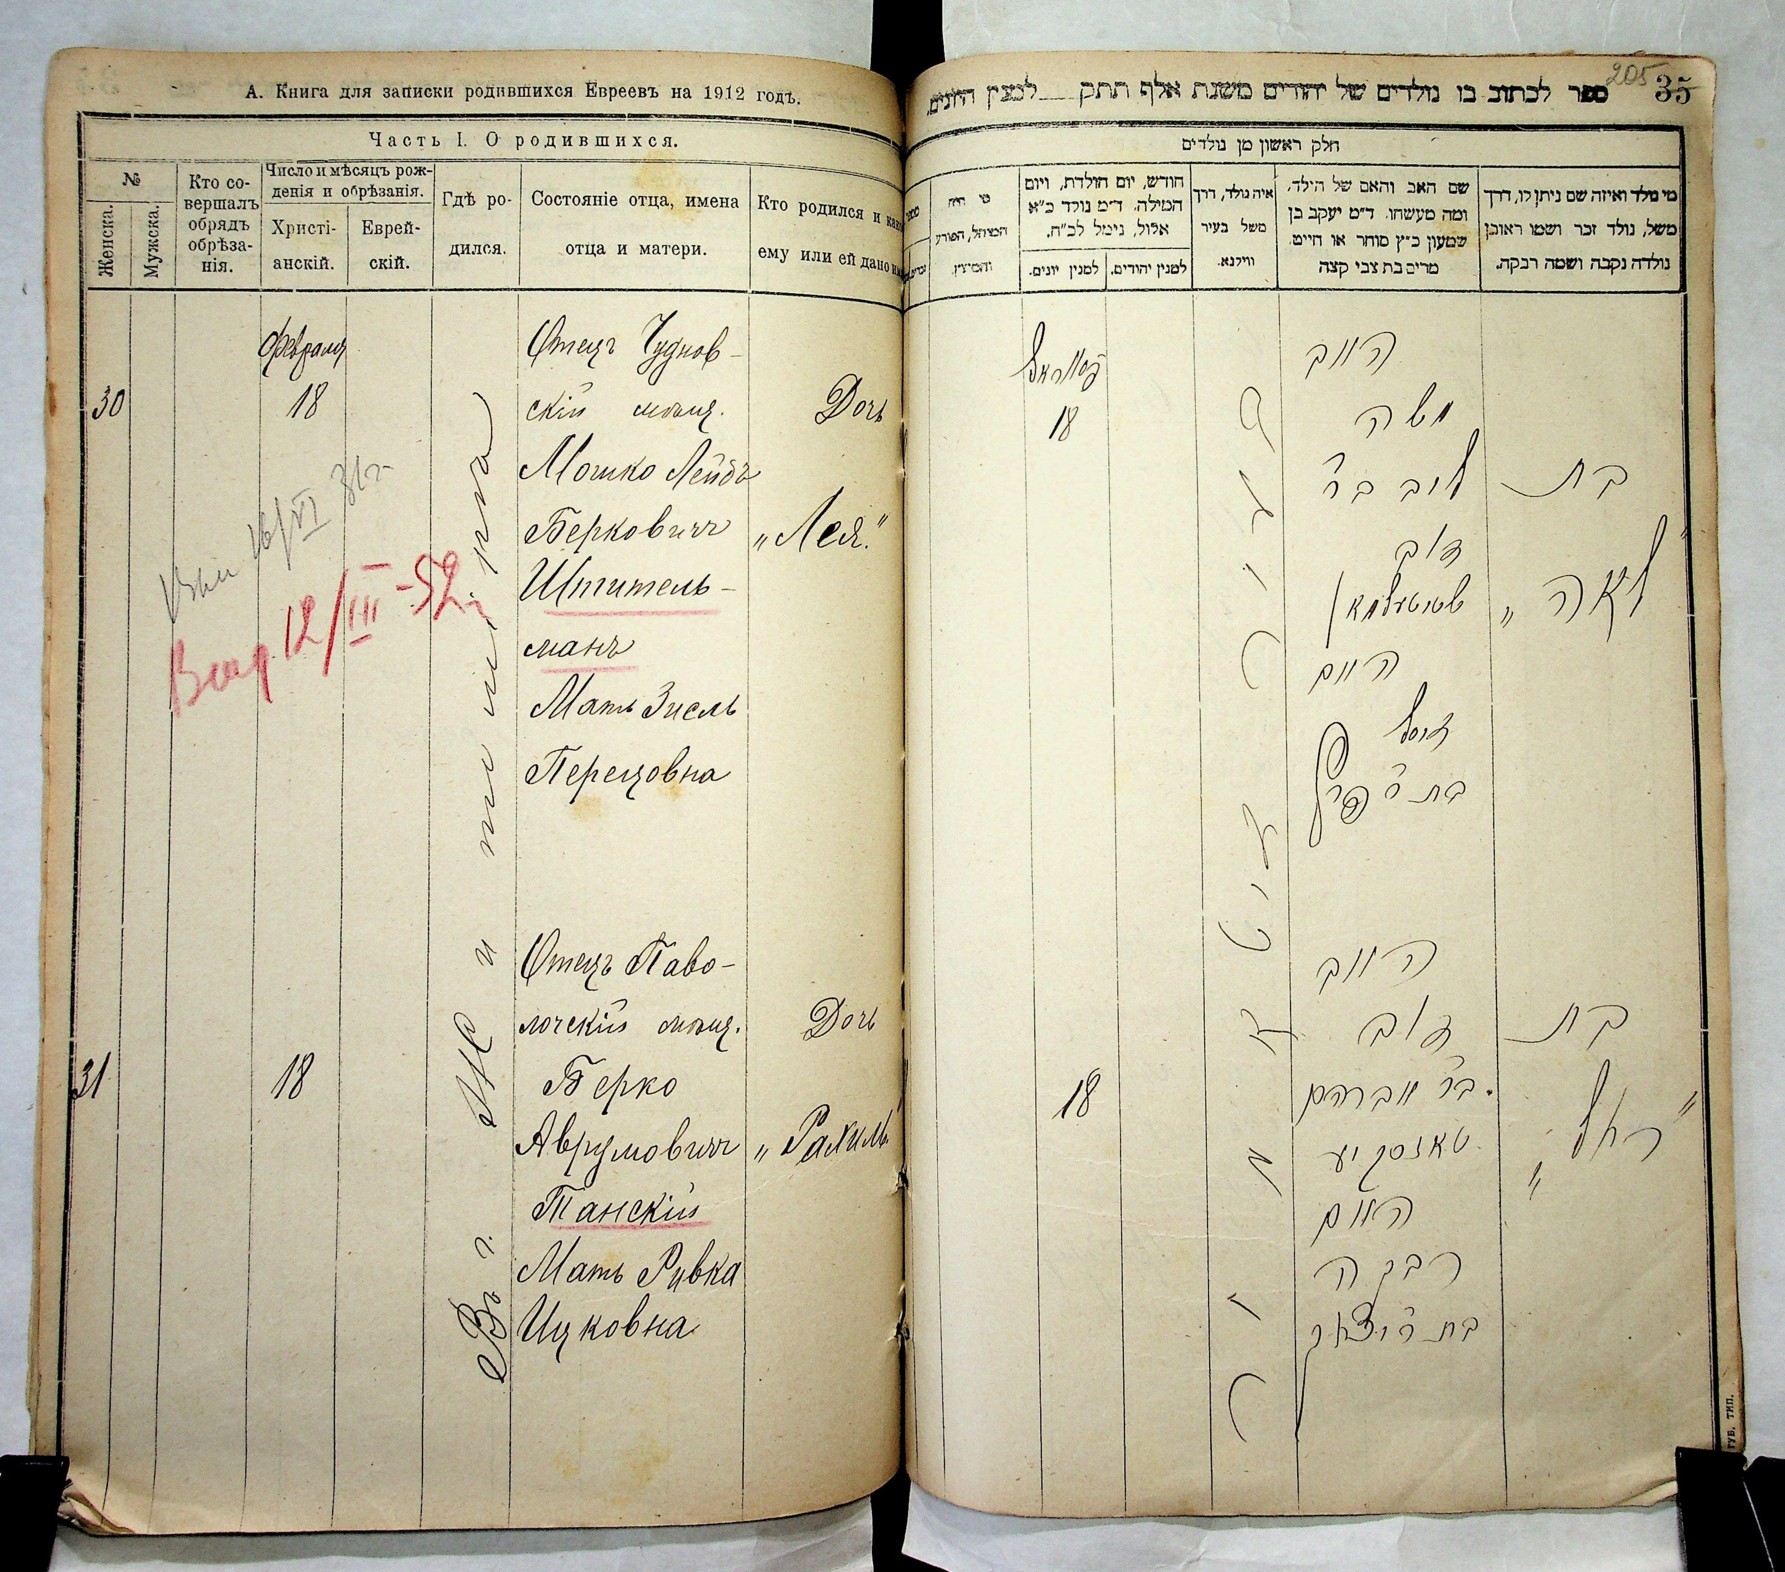 А. Книга для записки родившихся Евреевъ на 1912 годъ.
Часть I. О родившихся.
№
Женска.
Мужска.
Кто со-
вершалъ
обрядъ
обрѣза-
нія.
Число и мѣсяцъ рож-
денія и обрѣзанія.
Христі-
анскій.
Еврей-
скій.
Гдѣ ро-
дился.
Состояніе отца, имена
отца и матери.
Кто родился и как
ему или ей дано
30
Февраля
18
Въ г. Житомирѣ
Отецъ Чуднов-
скій мѣщ.
Мошко Лейбъ
Берковичъ
Штитель-
манъ
Мать Зисль
Перецовна
Дочь
„Лея."
16/VI 31г
12/III-52г
31
18
Отецъ Паво-
лочскій мѣщ.
Берко
Аврумовичъ
Танскій
Мать Ривка
Ицковна
Дочь
„Рахиль"
205
35
ספר לכתוב בו נולדים של יהודים משנת אלף תתק למנין היונים.
חלק ראשון מן נולדים
מי נולד ואיזה שם ניתן לו, דרך
משל, נולד זכר ושמו ראובן
נולדה נקבה ושמה רבקה.
שם האב והאם של הילד,
ומה מעשהו. ד״מ יעקב בן
שמעון כ״ץ סוחר או חייט
מרים בת צבי קצה
איה נולד, דרך
משל בעיר
ווילנא.
חודש, יום הולדת, ויום
המילה. ד״מ נולד כ״א
אלול, נימל לכ״ח.
למנין יהודים.
למנין יונים.
מי היה
המוהל, הפורע
והמוצץ.
פעווראל
18
זיטאמיר
האב
משה
ליב בר
דוב
שטיטעלמאן
האם
זיסל
בת ר פרץ
בת
„לאה"
18
האב
דוב
בר אברהם
טאנסקיע
האם
רבקה
בת ר יצחק
בת
„רחל"
ГУБ. ТИП.